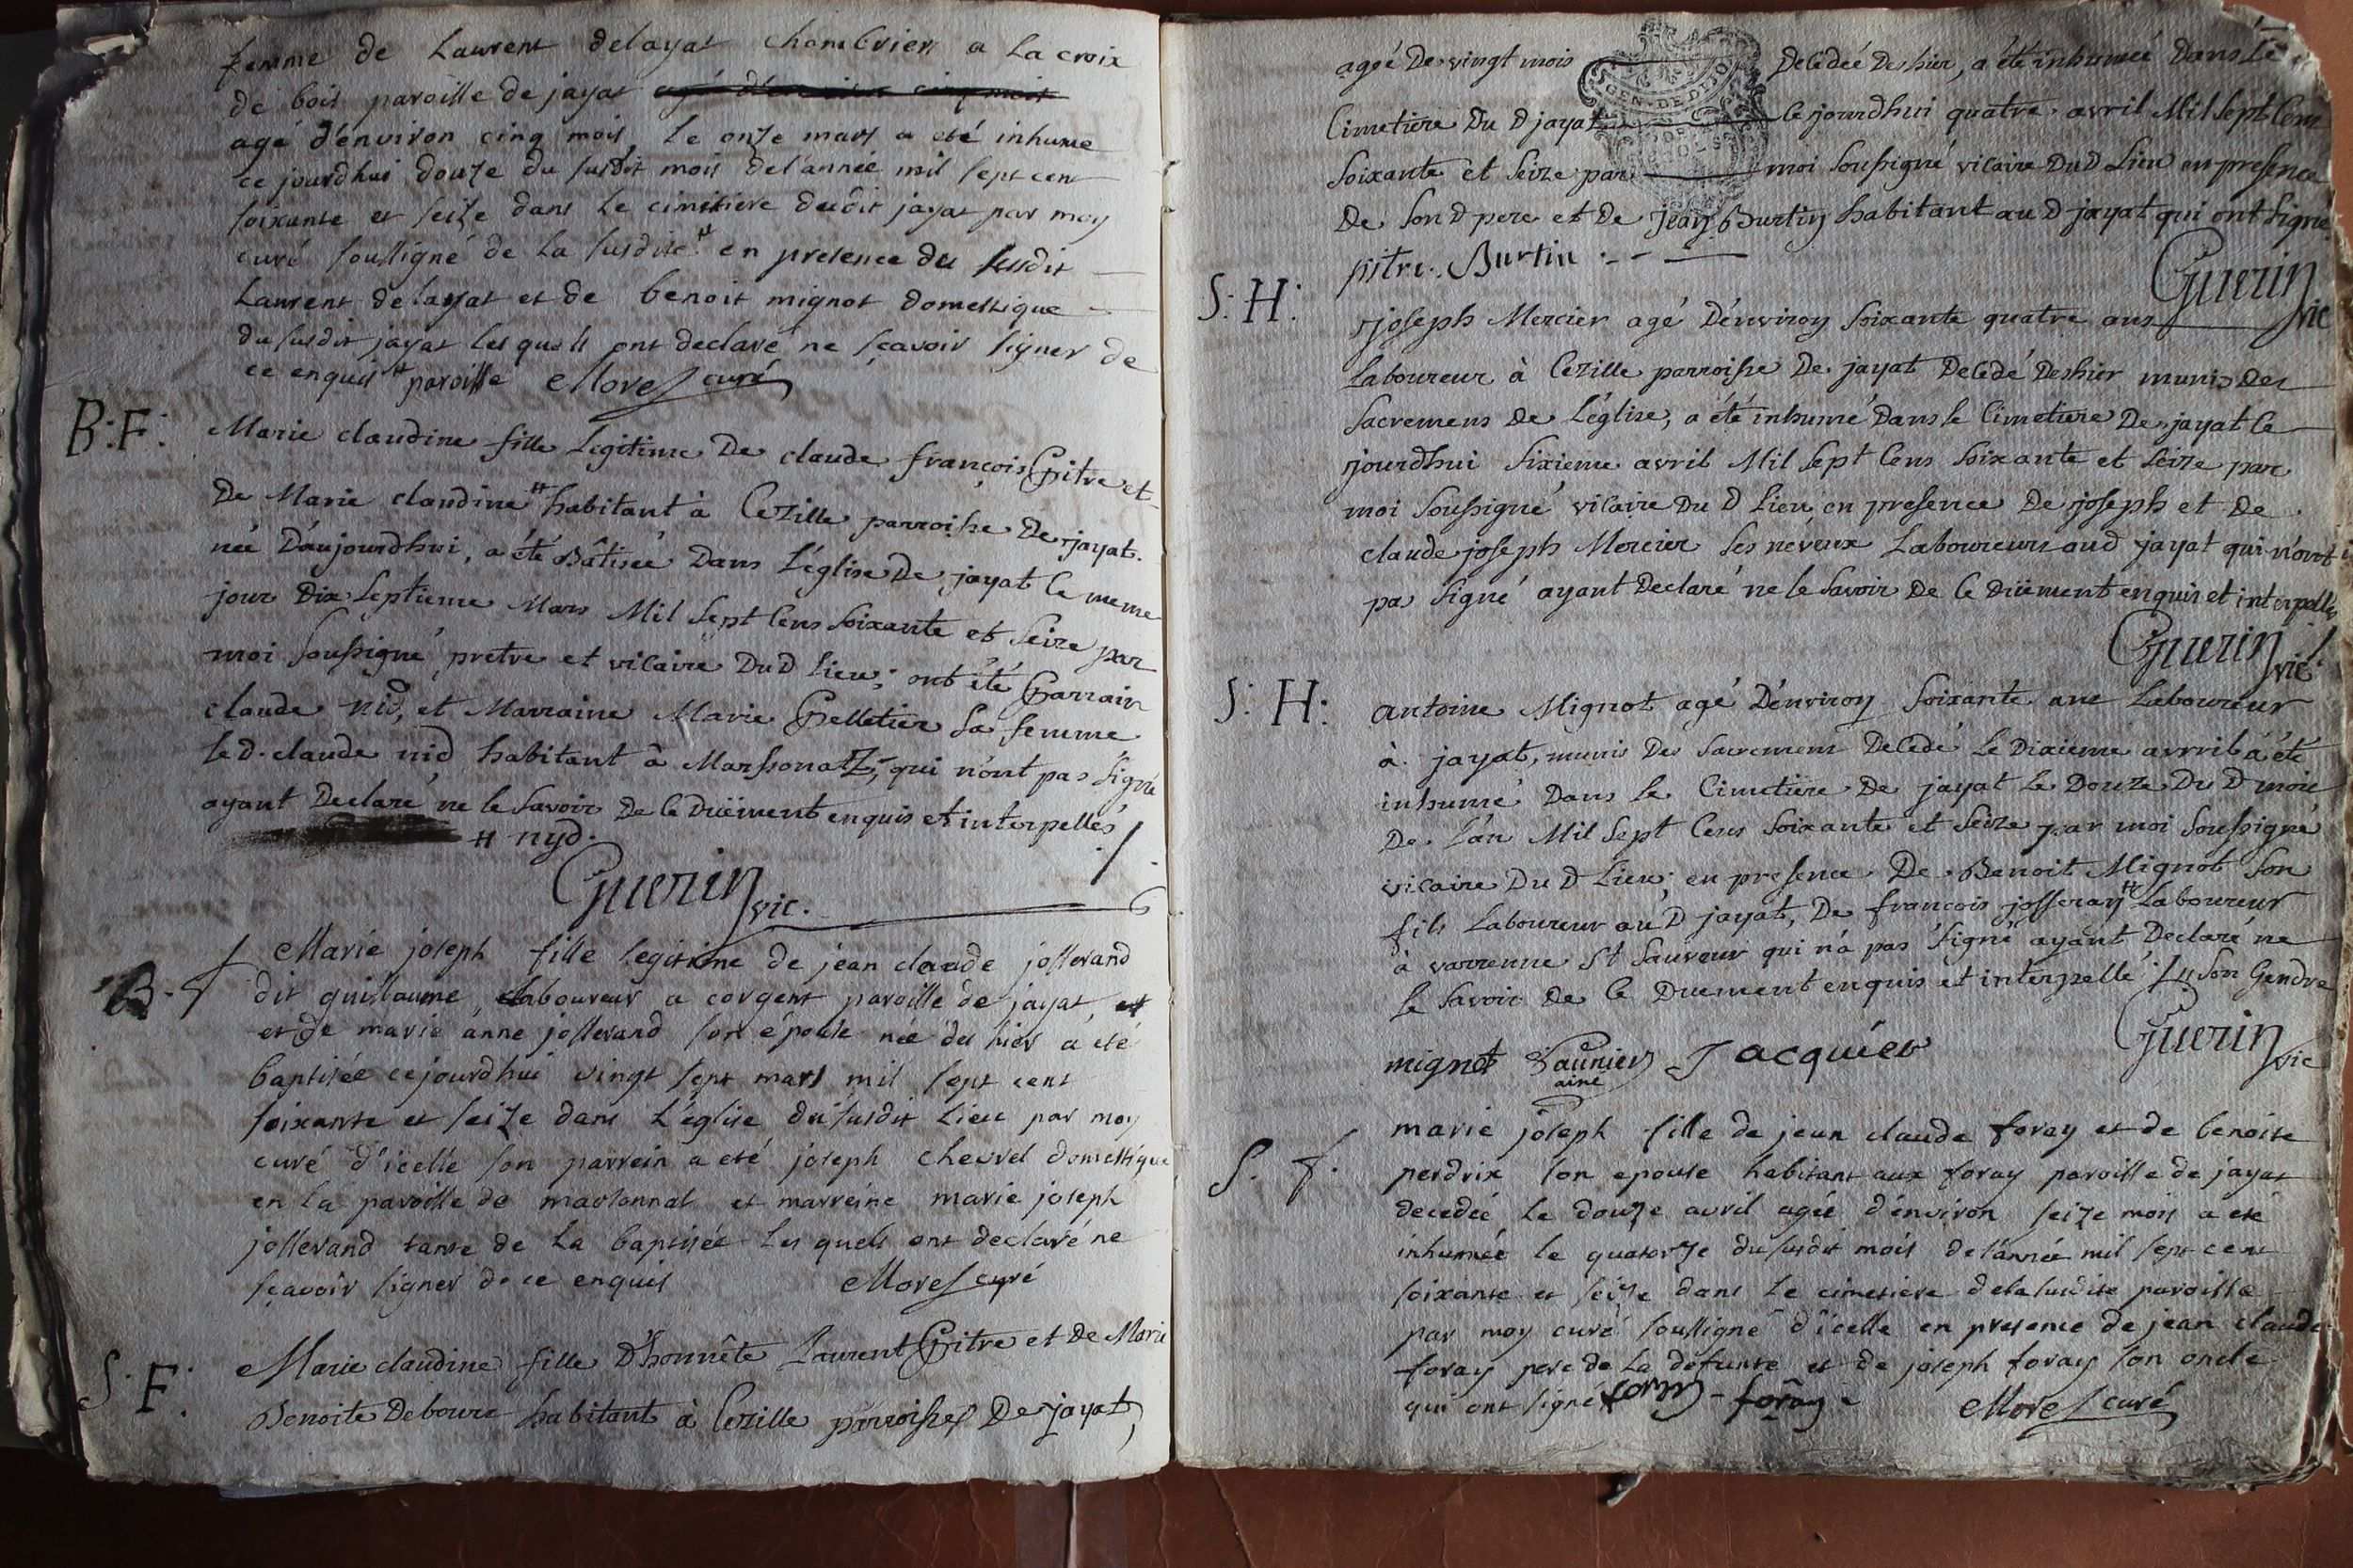 femme de Laurent delayat chambrier a la croix
de bois paroisse de jayat
agé d'environ cinq mois, le onze mars a eté inhume
ce jourdhui douze du susdit mois de l'année mil sept cent
soixante et seize dans le cimitiere dudit jayat par moy
curé soussigné de la susdite # en presence du susdit
Laurent delayat et de benoit mignot domestique
du susdit jayat lesquels ont declaré ne sçavoir signer de
ce enquis # paroisse Morel curé
B: F: Marie claudine fille Legitime De claude françois Pitre et
De Marie claudine # habitant à Cezille parroisse De jayat.
née D'aujourdhui, a été Bâtisée Dans L'église De jayat le meme
jour Dix Septieme Mars Mil Sept Cens Soixante et Seize par
moi Soussigné pretre et vicaire Du D Lieu; ont été Parrain
claude nid, et Marraine Marie Pelletier Sa femme
Le d. claude nid habitant à Marssonatz; qui n'ont pas Signé
ayant Declaré ne le Savoir De Ce Düement enquis et interpellés
# nyd.
Guerin vic.
B. f Marie joseph fille legitime de jean claude josserand
dit guillaume, laboureur a corgent paroisse de jayat, et
et de marie anne josserand son épouse née du hier a eté
baptisée cejourdhui vingt sept mars mil sept cent
soixante et seize dans l'eglise du susdit Lieu par moy
curé d'icelle son parrein a eté joseph chevrel domestique
en la paroisse de marsonnat et marreine marie joseph
josserand tante de la baptisée lesquels ont declaré ne
sçavoir signer de ce enquis Morel curé
S: F: Marie claudine fille D'honnête Laurent Pitre et De Marie
Benoite Deboure habitant à Cezille parroisse De jayat,
agée De vingt mois Decedée Deshier, a été inhumée Dans Le
Cimetiere Du D jayat Ce jourdhui quatre avril Mil Sept Cens
Soixante et Seize par moi Soussigné vicaire Du D Lieu en presence
De Son D pere et De jean Burtin habitant au D jayat qui ont Signé
pitre. Burtin
Guerin vic
S: H: joseph Mercier agé D'environ Soixante quatre ans
Laboureur à Cezille parroisse De jayat Decedé Deshier munis Des
Sacremens De L'église, a été inhumé Dans le Cimetiere De jayat Ce
jourdhui Sixieme avril Mil Sept Cens Soixante et Seize par
moi Soussigné vicaire Du D Lieu en presence De joseph et De
claude joseph Mercier Ses neveux Laboureurs aud jayat qui n'ont
pas Signé ayant Declaré ne le Savoir De Ce Düement enquis et interpellés
Guerin vic
S: H: antoine Mignot agé D'environ Soixante ans Laboureur
à jayat, munis Des Sacremens Decedé Le Dixieme avril a été
inhumé Dans le Cimetiere De jayat Le Douze Du D mois
De L'an Mil Sept Cens Soixante et Seize par moi Soussigné
vicaire Du D Lieu; en presence De Benoit Mignot Son
fils Laboureur au D jayat, De francois josseran # Laboureur
à varrenne St Sauveur qui n'a pas Signé ayant Declaré ne
Le Savoir De Ce Duement enquis et interpellé. # Son Gendre
Guerin vic
mignot Paunier Jacquier
ainé
S. f. marie joseph fille de jean claude foray et de benoite
perdrix son epouse habitant aux foray paroisse de jayat
decedée le douze avril agée d'environ seize mois a eté
inhumée le quatorze du susdit mois de l'année mil sept cent
soixante et seize dans le cimetiere de la susdite paroisse
par moy curé soussigné d'icelle en presence de jean claude
foray pere de la defunte et de joseph foray son oncle
qui ont signé foray - foray
Morel curé